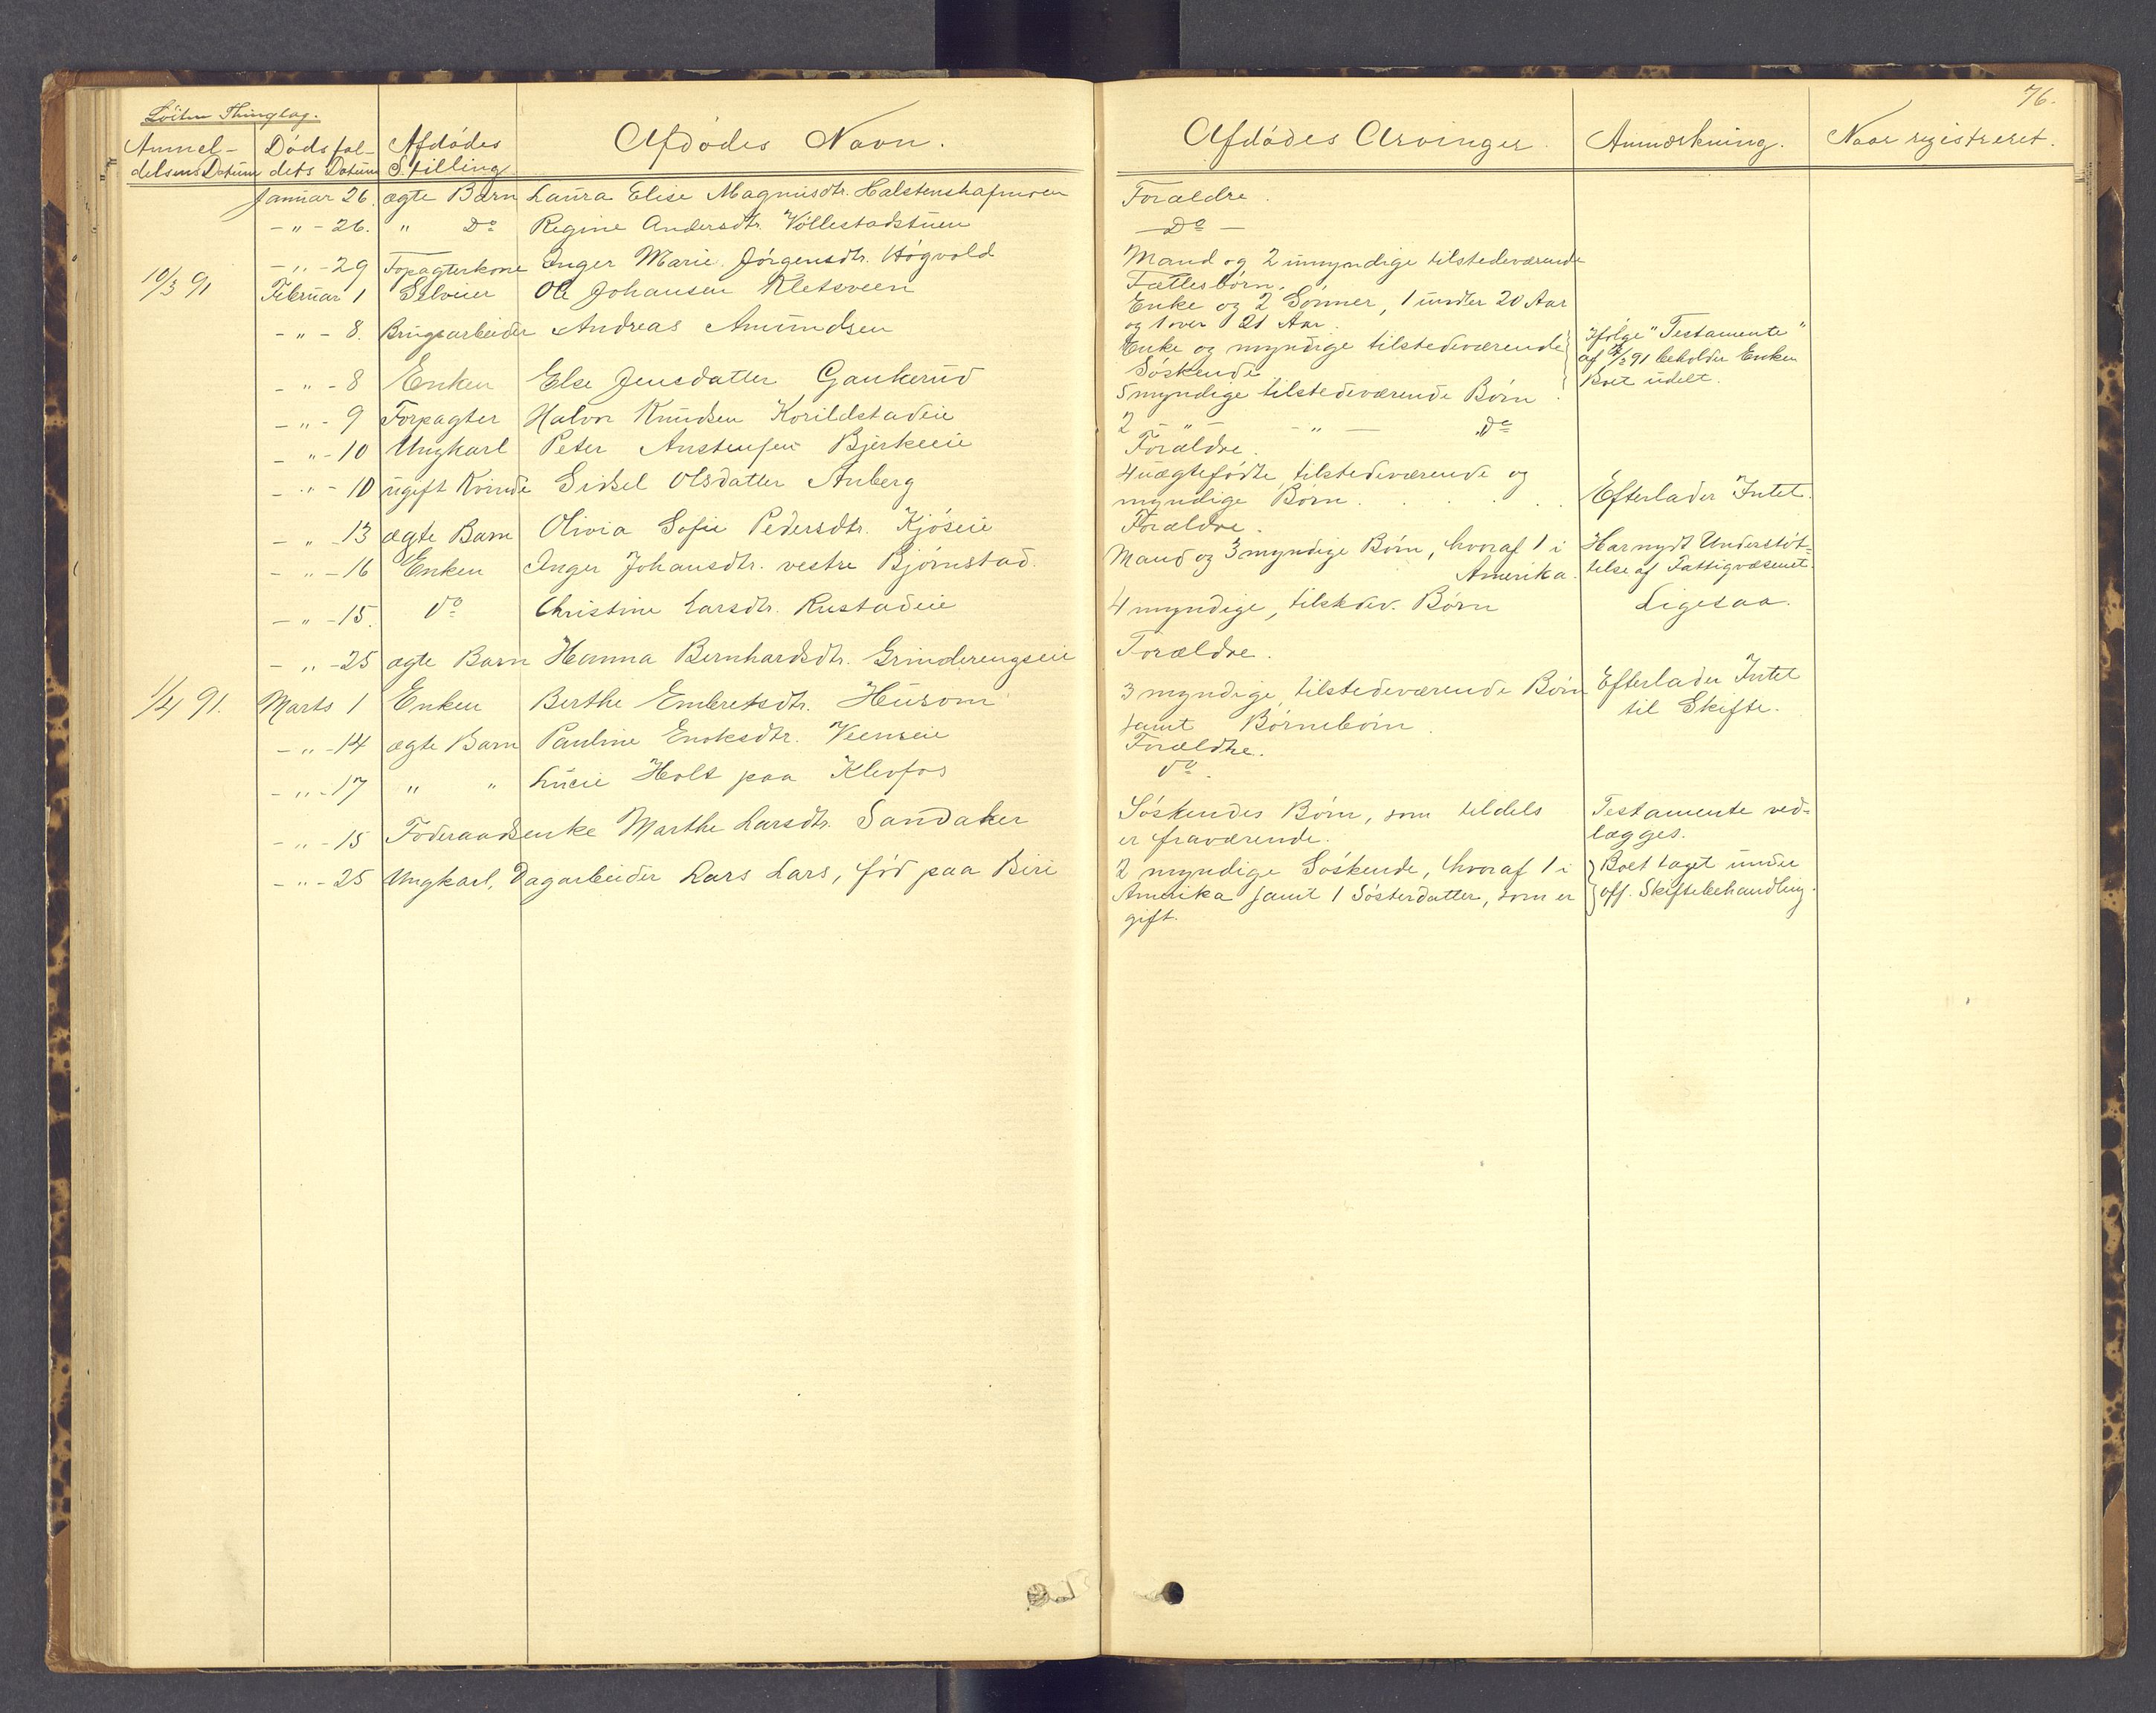 76.
Löiten Thinglag.
Anmel- Dödsfal- Afdödes Afdödes Navn. Afdödes Arvinger. Anmærkning. Naar registreret.
delsens Datum dets Datum Stilling
Januar 26. ægte Barn Laura Elise Magnusdtr. Forældre.
- " - 26. " Do Regine Andersdtr. Vollestadstuen - Do -
- " - 29 Fopagterkone Inger Marie Jörgensdtr. Högvold Mand og 2 umyndige tilstedeværende
Fællesbörn.
10/3 91 Februar 1 Selveier Ole Johansen Kletsveen Enke og 2 Sönner, 1 under 20 Aar
og 1 over 21 Aar.
- " - 8. Brugsarbeider Andreas Amundsen Enke og myndige tilstedeværende Ifölge "Testamente"
Söskende af /3 91 beholder Enken
Boet udelt.
- " - 8 Enken Else Jensdatter Gaukerud 5 myndige tilstedeværende Börn.
- " - 9 Forpagter Halvor Knudsen Korildstadeie 2 - " - - " - Do
- " - 10 Ungkarl Peter Austensen Bjerkeeie Forældre.
- " - 10 ugift Kvinde Sidsel Olsdatter Anberg 4 uægtefödte, tilstedeværende og
myndige Börn. . . . . Efterlader Intet.
- " - 13 ægte Barn Olivia Sofie Pedersdtr. Kjöseie Forældre.
- " - 16 Enken Inger Johansdtr. vestre Björnstad. Mand og 3 myndige Börn, hvoraf 1 i Har nydt Understöt-
Amerika. telse af Fattigvæsenet.
- " - 15. do Christine Larsdtr. Rustadeie 4 myndige, tilstdev. Börn Ligesaa.
- " - 25 ægte Barn Hanna Bernhardsdtr. Grinderengseie Forældre.
1/4 91. Marts 1 Enken Berthe Embretsdtr. Husom 3 myndige, tilstedeværende Börn Efterlader Intet
samt Börnebörn. til Skifte.
- " - 14 ægte Barn Pauline Enoksdtr. Veenseie Forældre.
- " - 17 " " Lucie Holt paa Klevfos do.
- " - 15 Föderaadsenke Marthe Larsdtr. Sandaker Söskendes Börn, som tildels Testamente ved-
er fraværende. lægges.
- " - 25 Ungkarl, Dagarbeider Lars Lars, föd paa Biri 2 myndige Söskende, hvoraf 1 i Boet taget under
Amerika samt 1 Sösterdatter, som er off. Skiftebehandling.
gift.